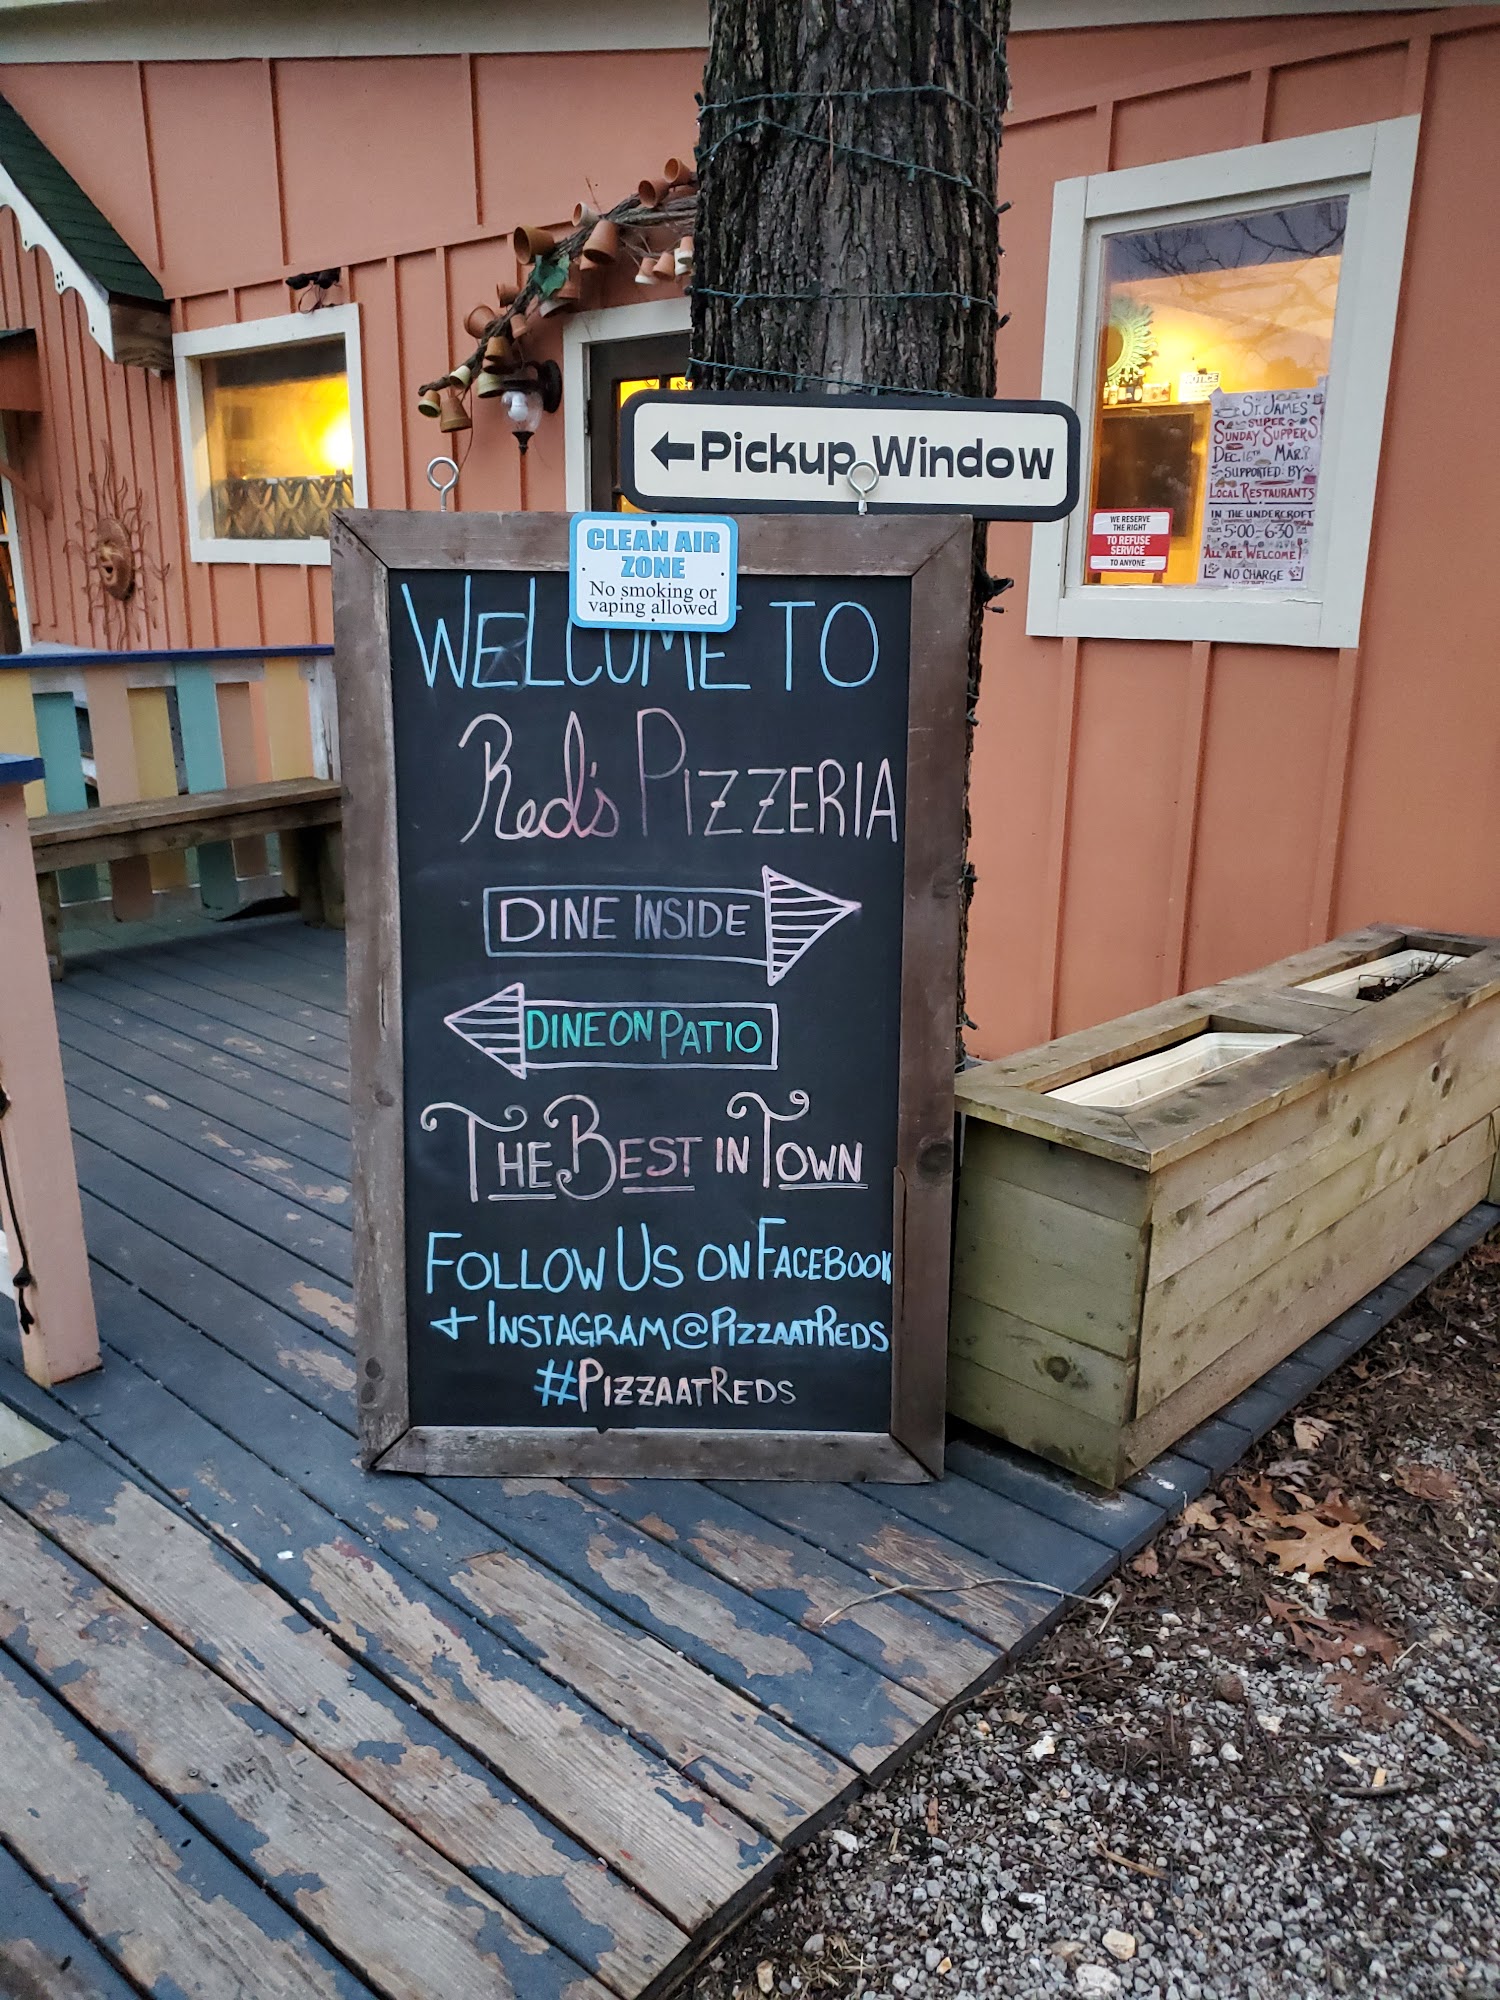 ←Pickup Window
CLEAN AIR
ZONE
No smoking or
vaping allowed
WELCOME TO
Red's PIZZERIA
DINE INSIDE
DINE ON PATIO
THE BEST IN TOWN
FOLLOW US ON FACEBOOK
+ INSTAGRAM@PIZZAATREDS
#PIZZAATREDS
NOTICE
ST. JAMES'
SUPER
SUNDAY SUPPERS
DEC. 16TH MAR.
SUPPORTED BY
LOCAL RESTAURANTS
IN THE UNDERCROFT
5:00-6:30
ALL ARE WELCOME!
NO CHARGE
WE RESERVE
THE RIGHT
TO REFUSE
SERVICE
TO ANYONE